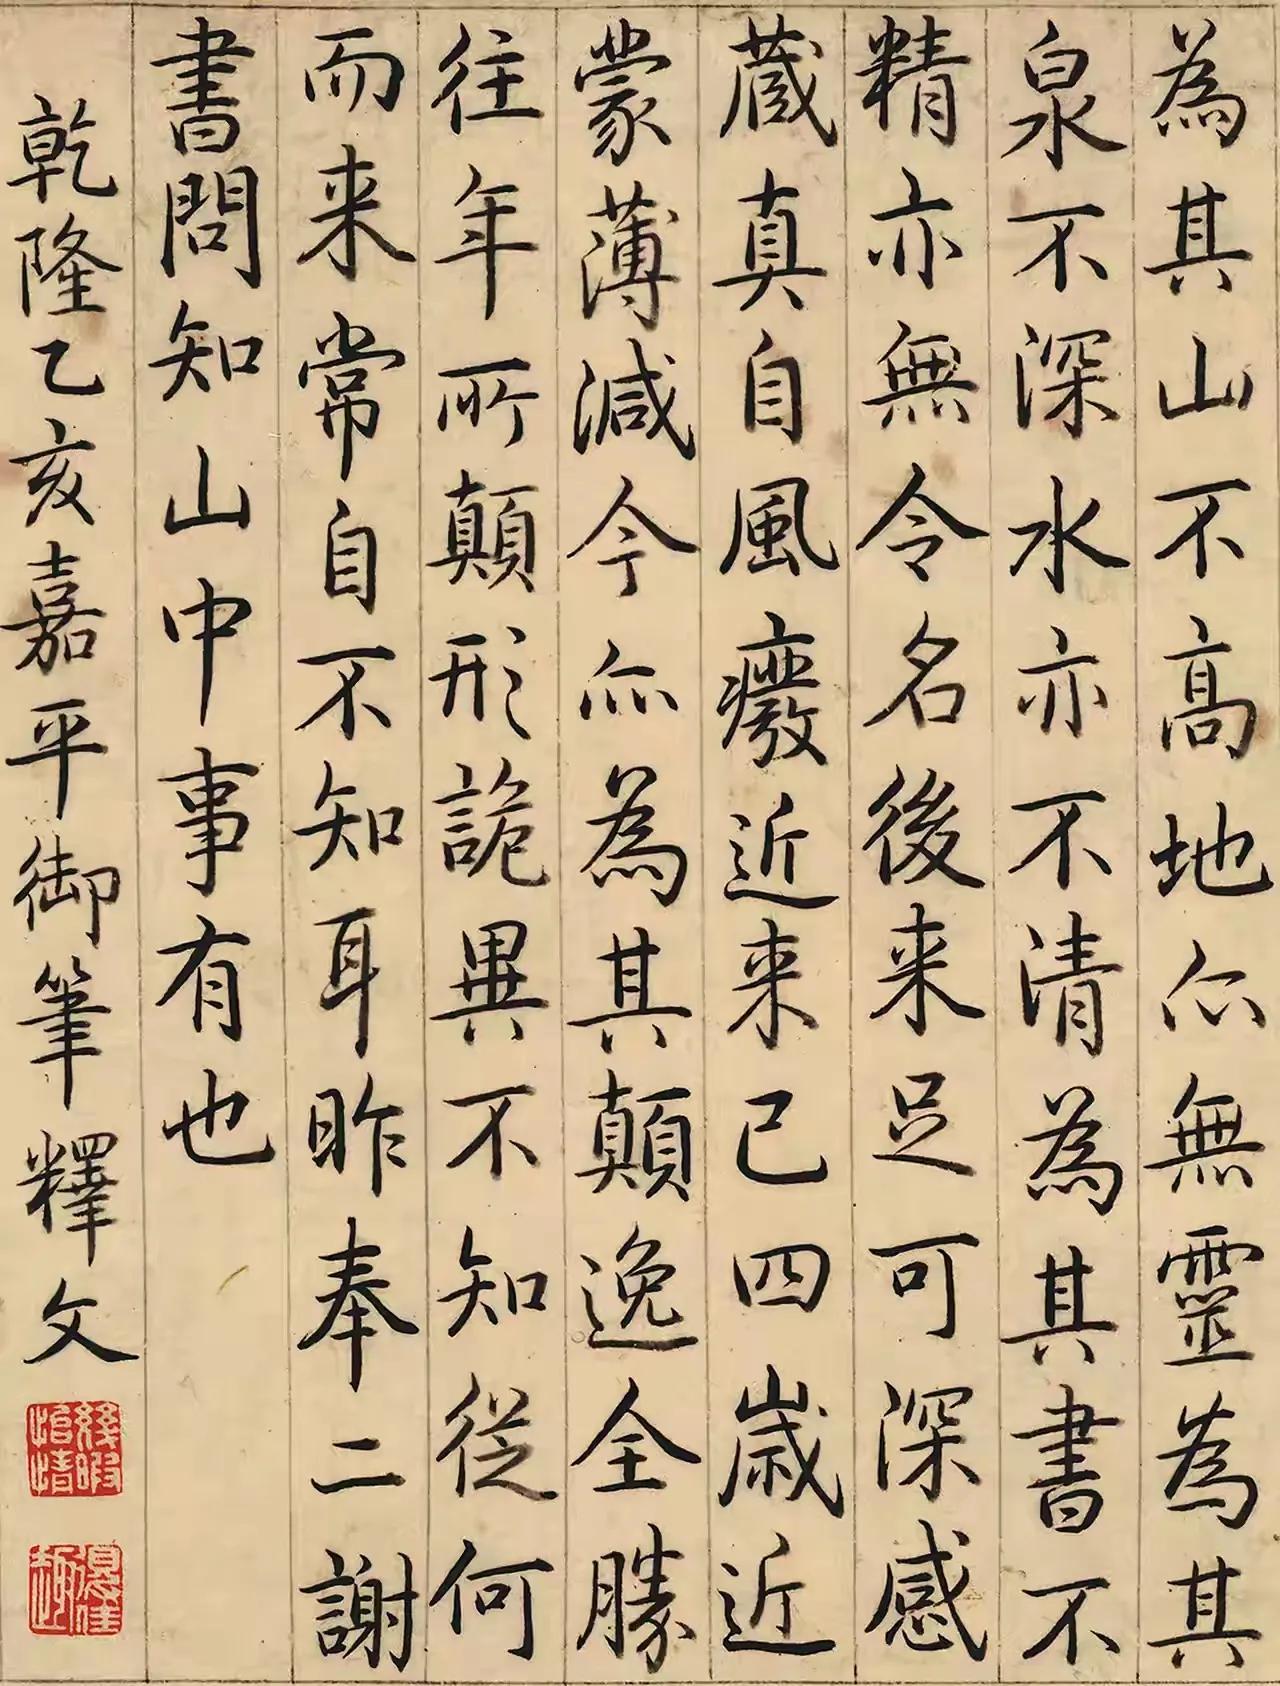 為其山不高地亦無靈為其
泉不深水亦不清為其書不
精亦無令名後来足可深感
藏真自風癈近来已四歲近
蒙薄減今亦為其顛逸全勝
往年所顛形詭異不知從何
而来常自不知耳昨奉二謝
書問知山中事有也
乾隆乙亥嘉平御筆釋文
幾暇怡情
得佳趣